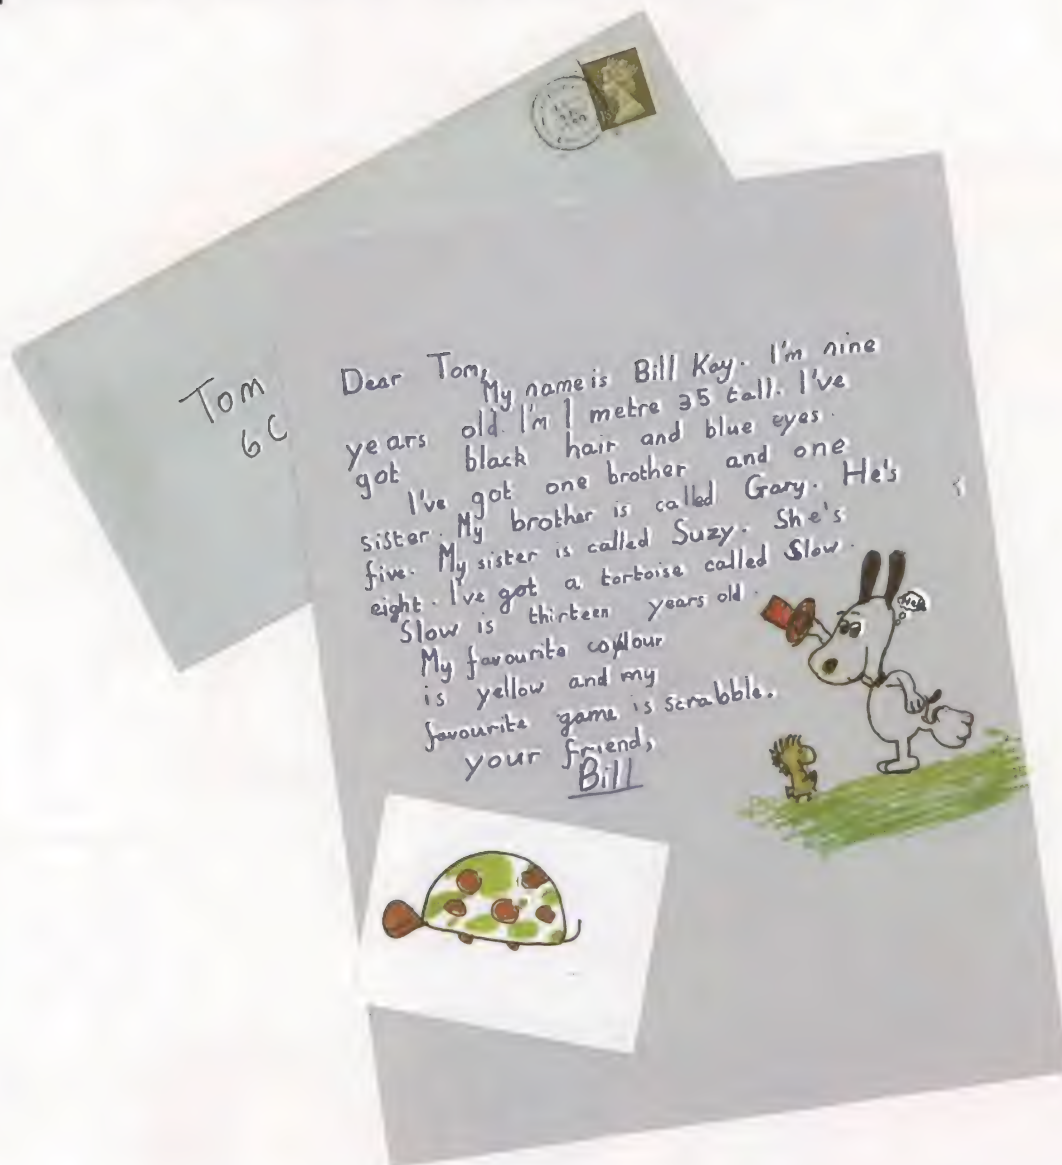 Tom
6C
Dear Tom,
My name is Bill Kay. I'm nine
years old. I'm 1 metre 35 tall. I've
got black hair and blue eyes.
I've got one brother and one
sister. My brother is called Gary. He's
five. My sister is called Suzy. She's
eight. I've got a tortoise called Slow.
Slow is thirteen years old.
My favourite colour
is yellow and my
favourite game is scrabble.
your friend,
Bill